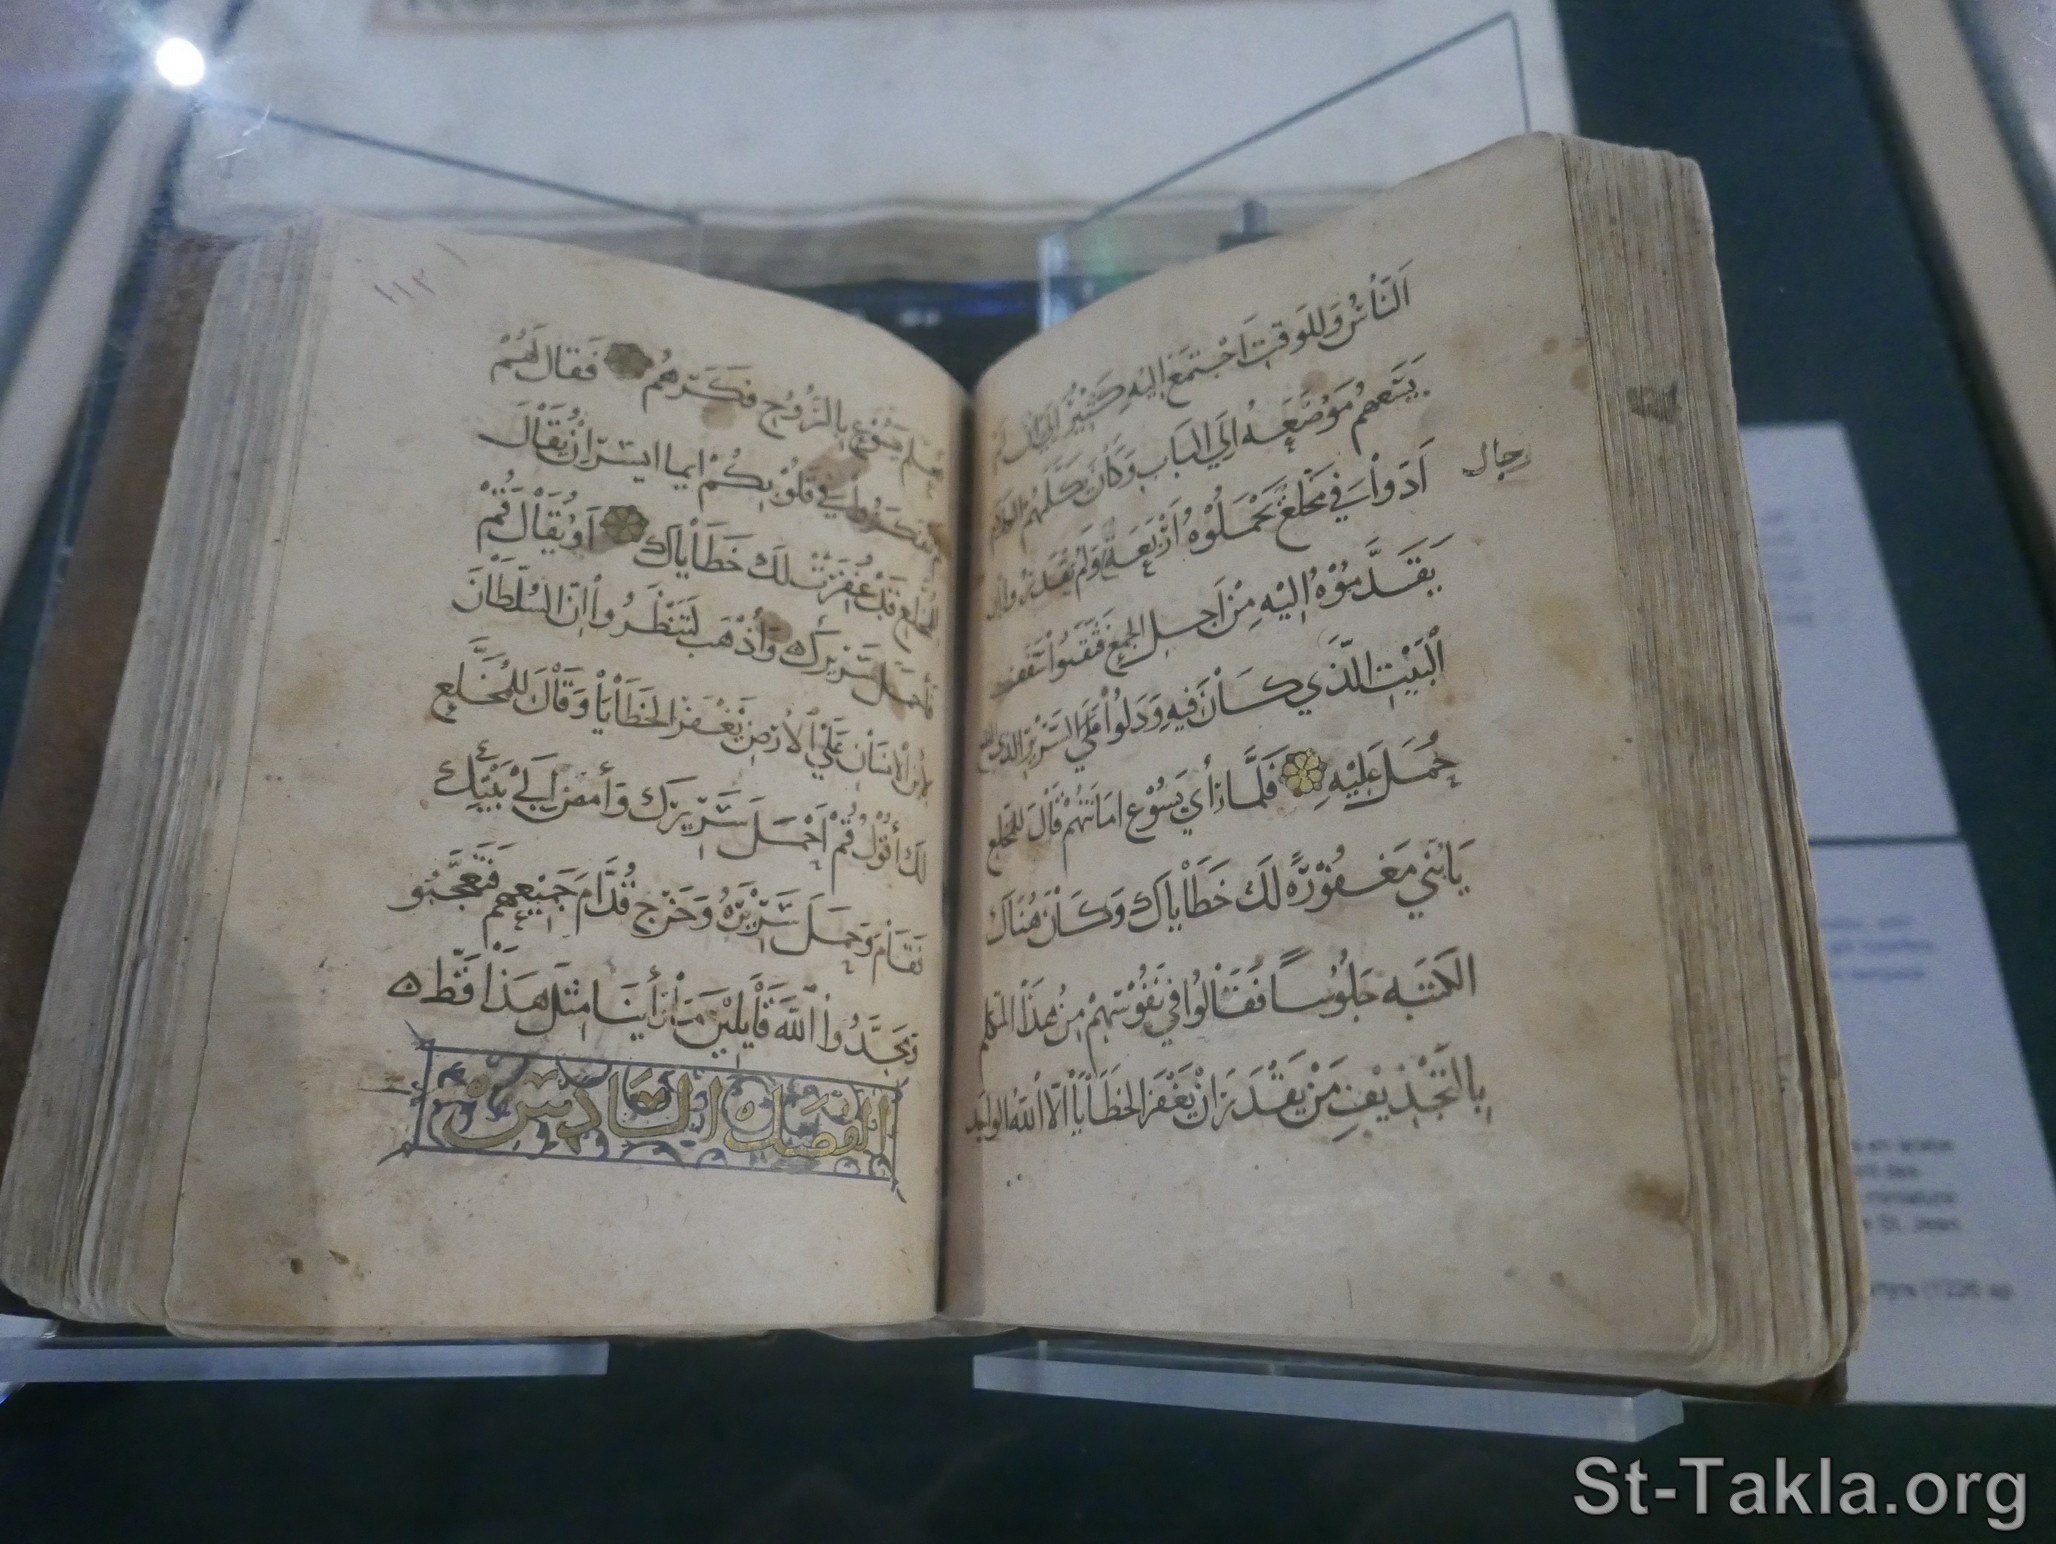 الناس وللوقت اجتمع اليه كثير
يسعهم موضعه الي الباب وكان يكلمهم
رجال
ادوا في مخلع يحملوه اربعة ولم يقدروا
يقدموه اليه من اجل الجمع فنقبوا سقف
البيت الذي كان فيه ودلوا السرير الذي
حمل عليه فلما رأي يسوع امانتهم قال للمخلع
يا بني مغفورة لك خطاياك وكان هناك
الكتبه جلوسا فقالوا في نفوسهم من هذا المتكلم
بالتجديف من يقدر ان يغفر الخطايا الا الله الواحد
١١٢
يسوع بالروح فكرهم فقال لهم
في قلوبكم ايما ايسر ان يقال
للمخلع قد غفرت لك خطاياك او يقال قم
سريرك واذهب لتنظروا ان السلطان
لابن الانسان علي الارض يغفر الخطايا وقال للمخلع
لك أقول قم احمل سريرك وأمض الي بيتك
فقام وحمل سريره وخرج قدام جميعهم فتعجبو
ومجدوا الله قايلين ما رأينا مثل هذا قط ه
الفصل السادس
St. Jean
(1226 ap.
St-Takla.org